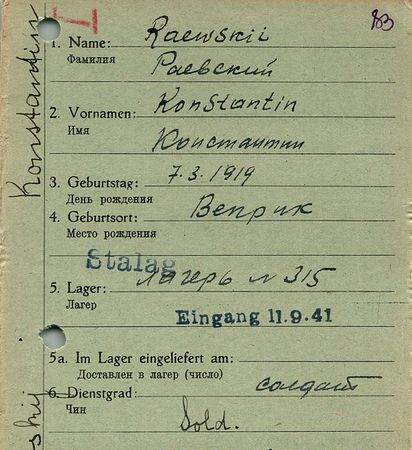 83
1. Name: Raewskii
Фамилия Раевский
2. Vornamen: Konstantin
Имя Константин
3. Geburtstag: 7.3.1919
День рождения
4. Geburtsort: Веприк
Место рождения
Stalag
5. Lager: Лагерь N 315
Лагер
Eingang 11.9.41
5a. Im Lager eingeliefert am:
Доставлен в лагер (число)
6. Dienstgrad: солдат
Чин Sold.
Konstantin